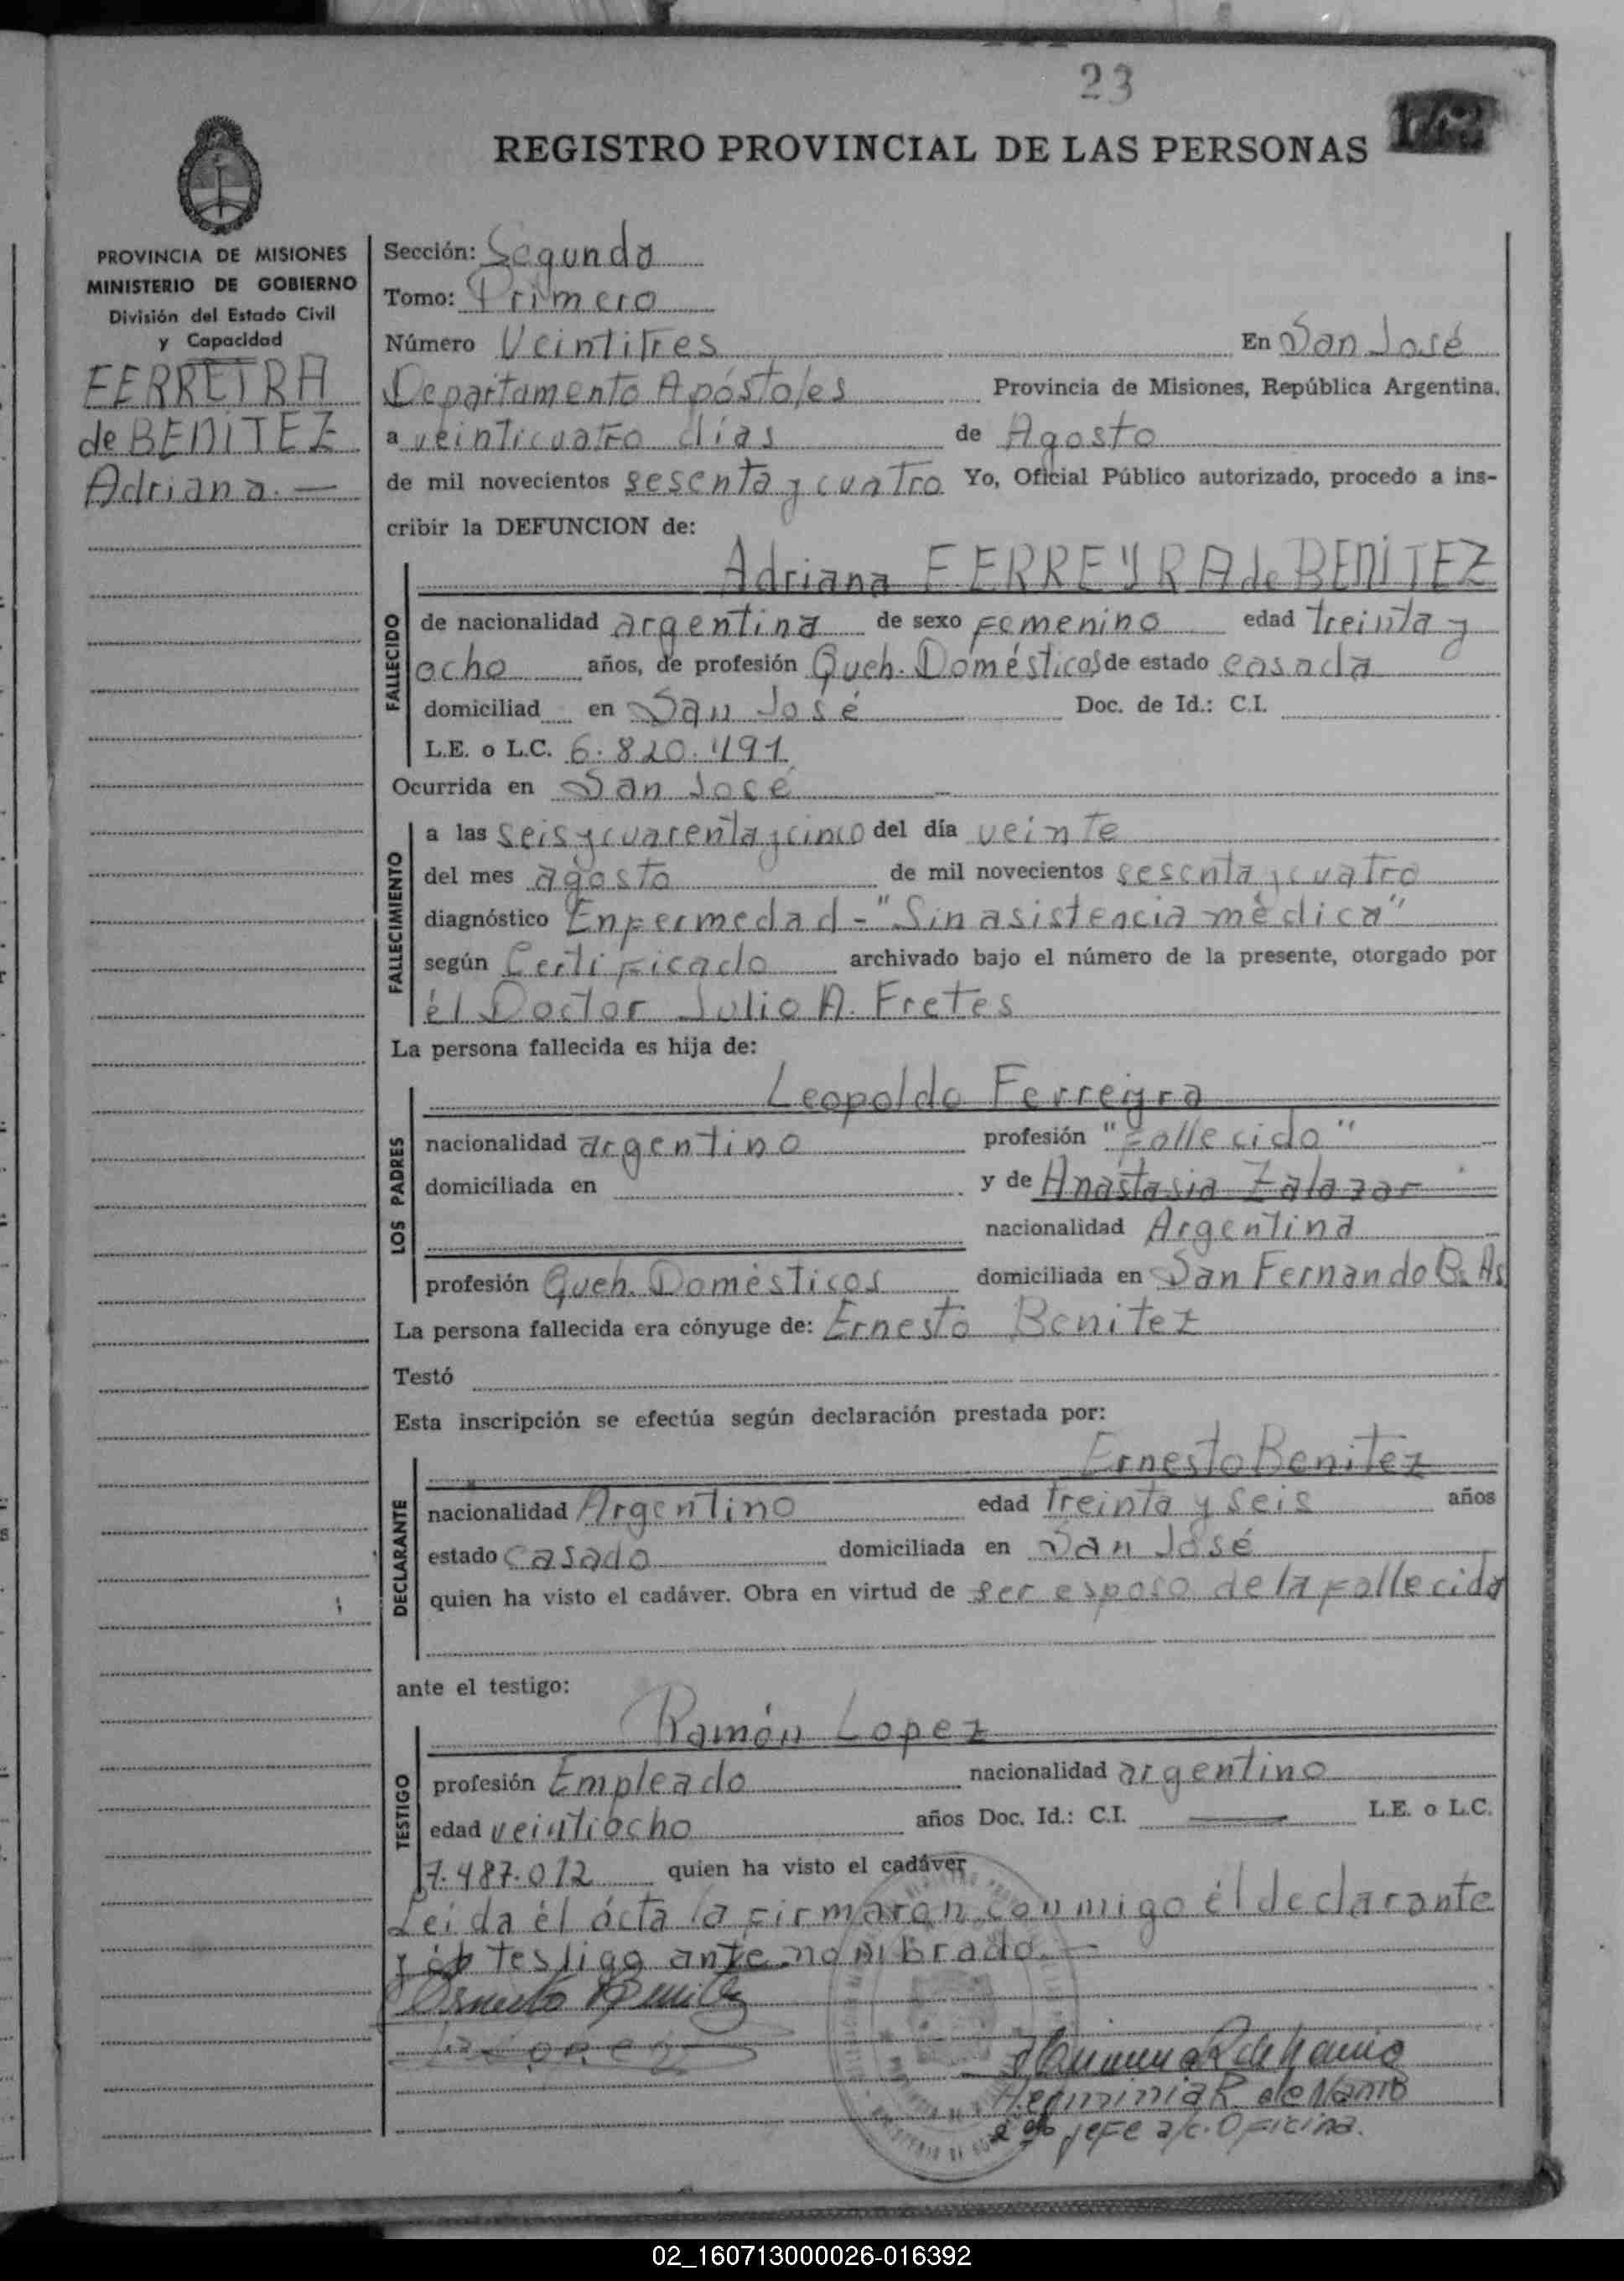 23
REGISTRO PROVINCIAL DE LAS PERSONAS
PROVINCIA DE MISIONES
MINISTERIO DE GOBIERNO
División del Estado Civil
y Capacidad
FERREIRA
de BENITEZ
Adriana. —
Sección: Segunda
Tomo: Primero
Número Veintitres En San José
Departamento Apóstoles Provincia de Misiones, República Argentina,
a veinticuatro días de Agosto
de mil novecientos sesenta y cuatro Yo, Oficial Público autorizado, procedo a ins-
cribir la DEFUNCION de:
FALLECIDO
Adriana FERREYRA de BENITEZ
de nacionalidad argentina de sexo Femenino edad treinta y
ocho años, de profesión Queh. Domésticos de estado casada
domiciliad en San José Doc. de Id.: C.I.
L.E. o L.C. 6.820.491
Ocurrida en San José
FALLECIMIENTO
a las seis y cuarenta y cinco del día veinte
del mes agosto de mil novecientos sesenta y cuatro
diagnóstico Enfermedad - "Sin asistencia mèdica"
según Certificado archivado bajo el número de la presente, otorgado por
él Doctor Julio A. Fretes
La persona fallecida es hija de:
LOS PADRES
Leopoldo Ferreyra
nacionalidad argentino profesión "Fallecido"
domiciliada en y de Anastasia Zalazar
nacionalidad Argentina
profesión Queh. Domésticos domiciliada en San Fernando Bs. As
La persona fallecida era cónyuge de: Ernesto Benitez
Testó
Esta inscripción se efectúa según declaración prestada por:
DECLARANTE
Ernesto Benitez
nacionalidad Argentino edad treinta y seis años
estado casado domiciliada en San José
quien ha visto el cadáver. Obra en virtud de ser esposo de la fallecida
ante el testigo:
TESTIGO
Ramón Lopez
profesión Empleado nacionalidad argentino
edad veintiocho años Doc. Id.: C.I. — L.E. o L.C.
7.487.012 quien ha visto el cadáver
Leida él ácta la firmaron conmigo él declarante
y él testigo ante nombrado. —
Ernesto Benitez
Lopez
Herminia R de Nanio
Jefe a/c. Oficina.
02_160713000026-016392